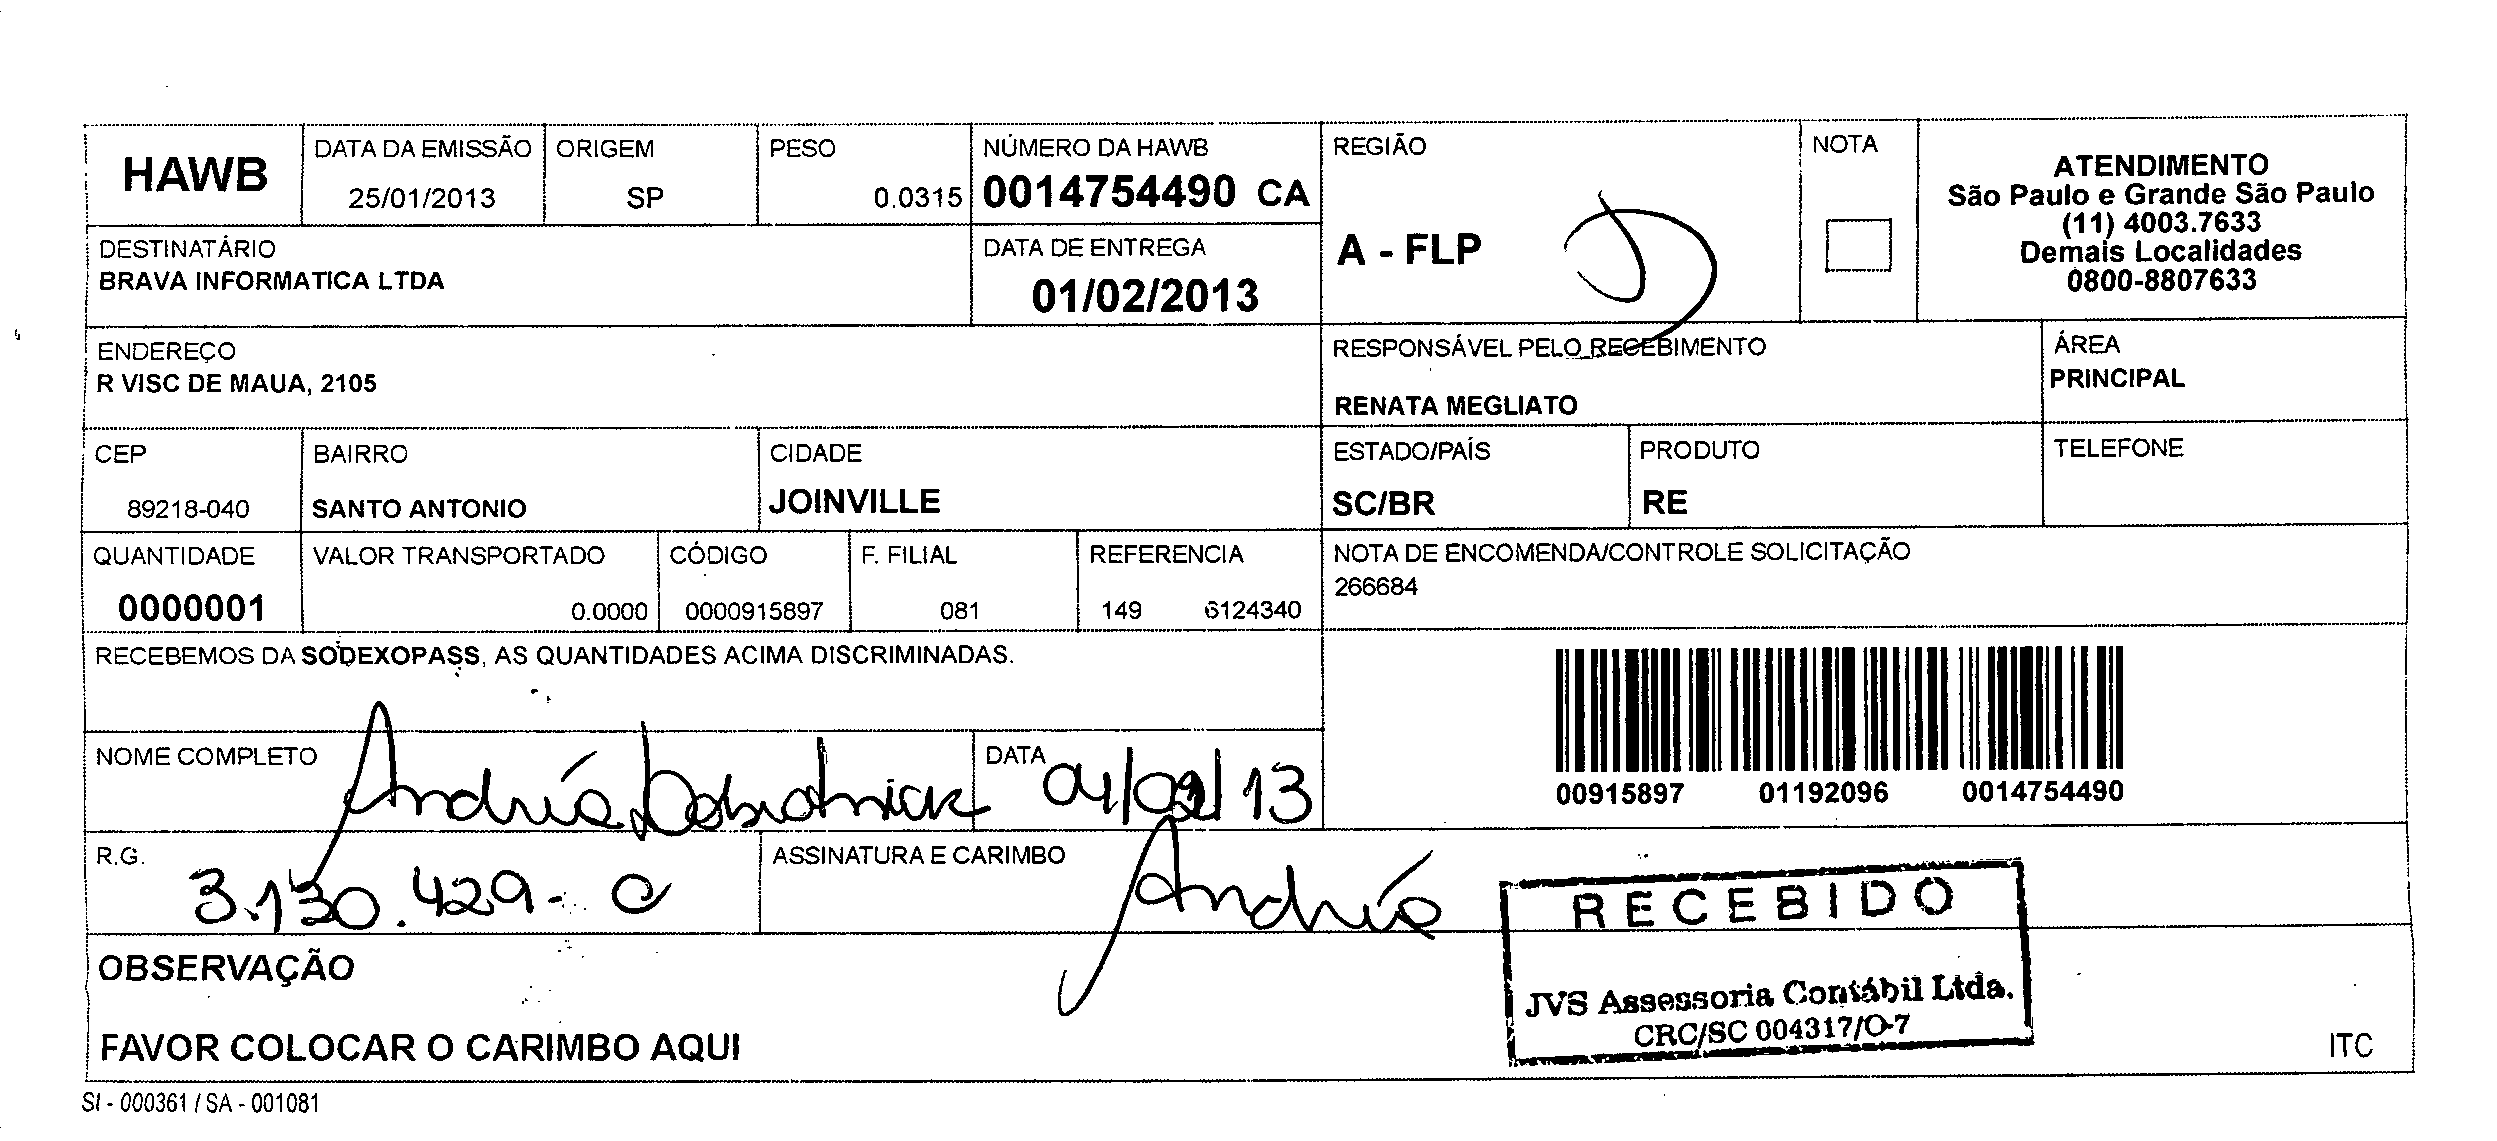 HAWB
DATA DA EMISSÃO
25/01/2013
ORIGEM
SP
PESO
0.0315
NÚMERO DA HAWB
0014754490 CA
REGIÃO
A - FLP
NOTA
ATENDIMENTO
São Paulo e Grande São Paulo
(11) 4003.7633
Demais Localidades
0800-8807633
DESTINATÁRIO
BRAVA INFORMATICA LTDA
DATA DE ENTREGA
01/02/2013
ENDEREÇO
R VISC DE MAUA, 2105
RESPONSÁVEL PELO RECEBIMENTO
RENATA MEGLIATO
ÁREA
PRINCIPAL
CEP
89218-040
BAIRRO
SANTO ANTONIO
CIDADE
JOINVILLE
ESTADO/PAÍS
SC/BR
PRODUTO
RE
TELEFONE
QUANTIDADE
0000001
VALOR TRANSPORTADO
0.0000
CÓDIGO
0000915897
F. FILIAL
081
REFERENCIA
149 6124340
NOTA DE ENCOMENDA/CONTROLE SOLICITAÇÃO
266684
RECEBEMOS DA SODEXOPASS, AS QUANTIDADES ACIMA DISCRIMINADAS.
00915897 01192096 0014754490
NOME COMPLETO
DATA
R.G.
3.130.429-
ASSINATURA E CARIMBO
RECEBIDO
JVS Assessoria Contábil Ltda.
CRC/SC 004317/O-7
OBSERVAÇÃO
FAVOR COLOCAR O CARIMBO AQUI
ITC
SI - 000361 / SA - 001081